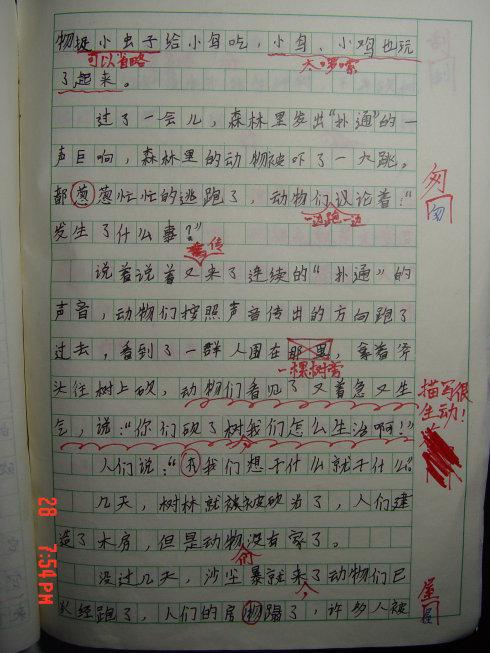 物捉小虫子给小鸟吃，小鸟、小鸡也玩
可以省略
太啰嗦
了起来。
过了一会儿，森林里发出“扑通”的一
声巨响，森林里的动物被吓了一大跳。
匆
都葱葱忙忙的逃跑了，动物们议论着：“
一边跑一边
发生了什么事？”
传
说着说着又来了连续的“扑通”的
声音，动物们按照声音传出的方向跑了
过去，看到了一群人围在那里，拿着斧
一棵树旁
头往树上砍，动物们看见了又着急又生
描写很
生动！
气，说：“你们砍了树我们怎么生活啊！”
人们说：“我们想干什么就干什么。”
几天，树林就被砍光了，人们建
造了木房，但是动物没有家了。
们
没过几天，沙尘暴就来了动物们已
，
经跑了，人们的房物蹋了，许多人被
屋
28 7:54PM